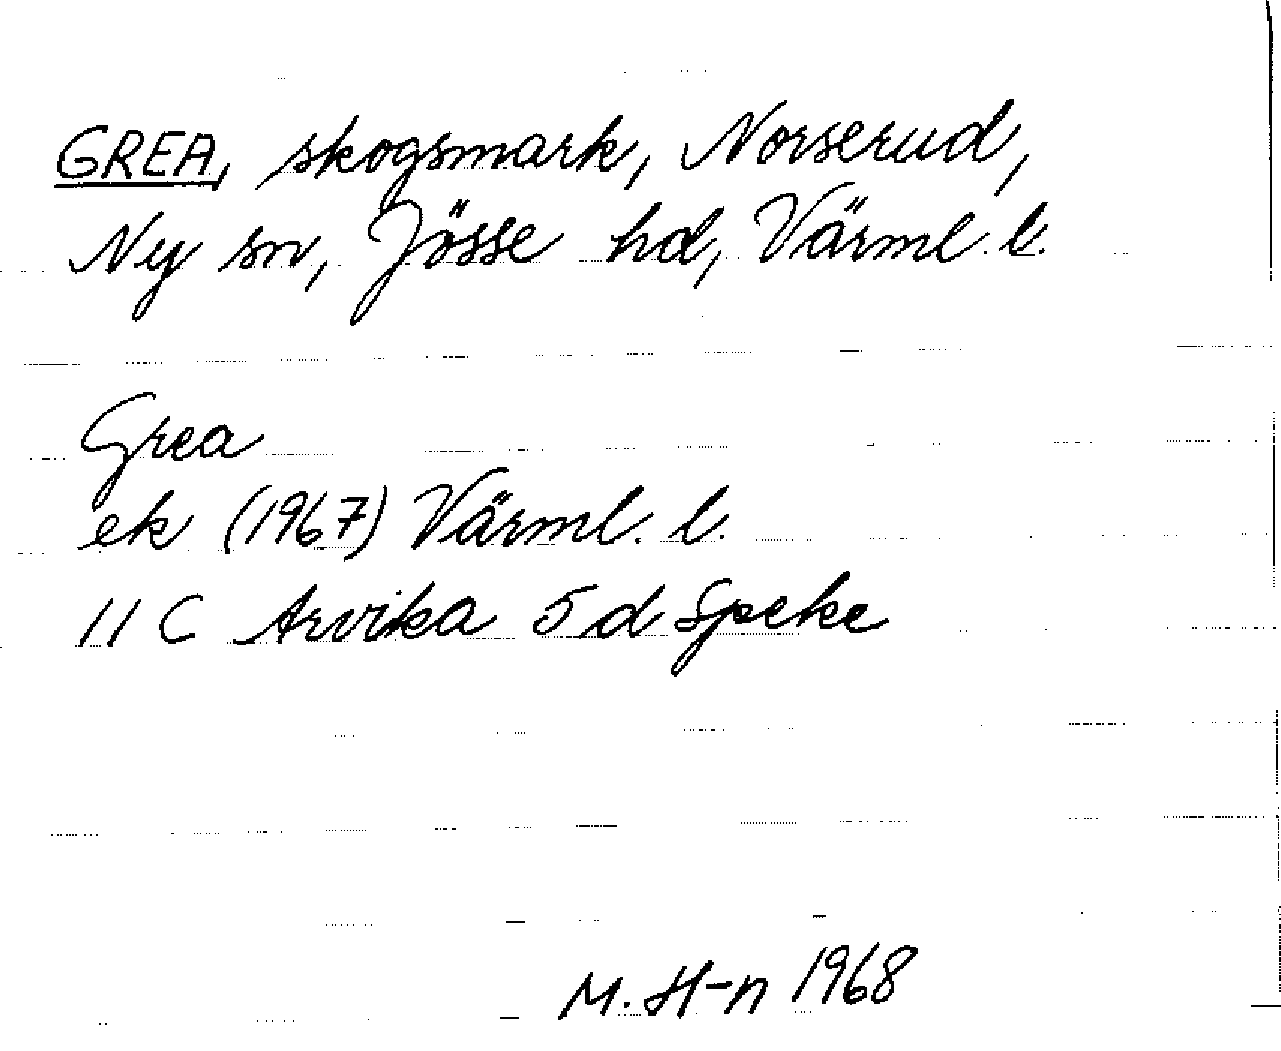 GREA, skogsmark, Norserud,
Ny sn, Jösse hd, Värml. l.
Grea
ek (1967) Värml. l.
11 C Arvika 5 d Speke
M. H-n 1968